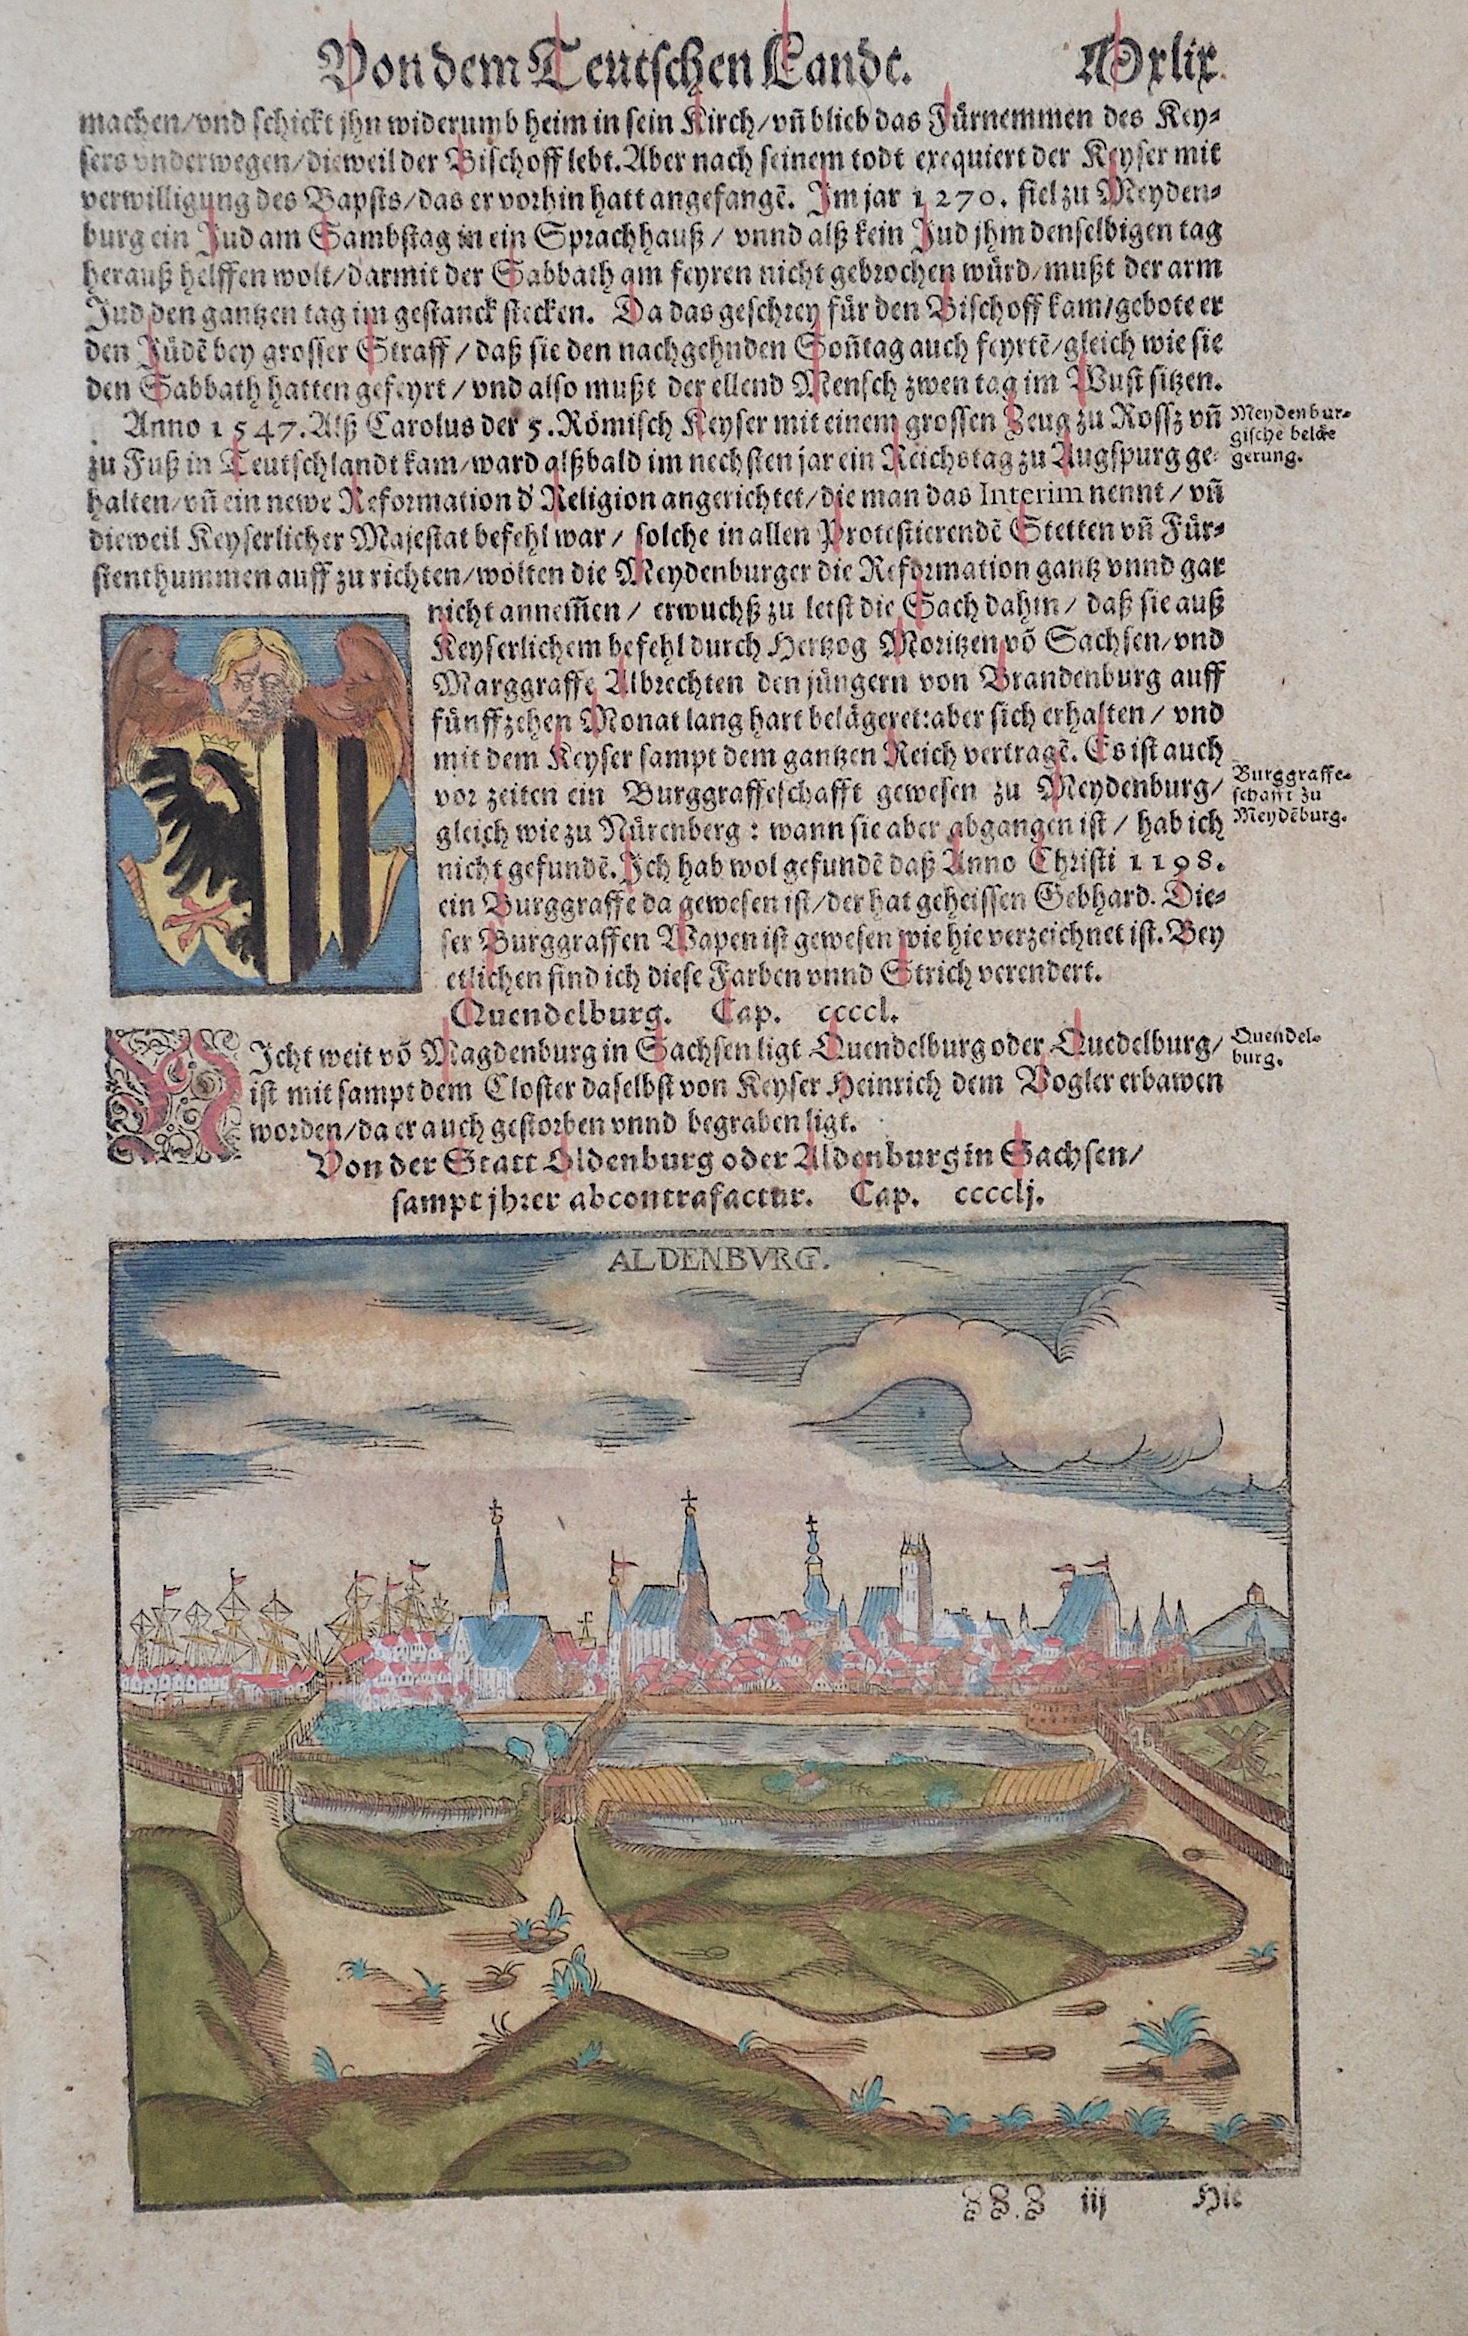 Von dem Teutschen Landt. Mxlix.
machen/vnd schickt jhn widerumb heim in sein Kirch/vñ blieb das Fürnemmen des Key-
sers vnderwegen/dieweil der Bischoff lebt. Aber nach seinem todt exequiert der Keyser mit
verwilligung des Bapsts/das er vorhin hatt angefangẽ. Im jar 1270. fiel zu Meyden-
burg ein Jud am Sambstag in ein Sprachhauß/ vnnd alß kein Jud jhm denselbigen tag
herauß helffen wolt/darmit der Sabbath am feyren nicht gebrochen würd/mußt der arm
Jud den gantzen tag im gestanck stecken. Da das geschrey für den Bischoff kam/gebote er
den Jüdẽ bey grosser Straff/ daß sie den nachgehnden Soñtag auch feyrtẽ/gleich wie sie
den Sabbath hatten gefeyrt/ vnd also mußt der ellend Mensch zwen tag im Wust sitzen.
Anno 1547. Alß Carolus der 5. Römisch Keyser mit einem grossen Zeug zu Rossz vñ
zu Fuß in Teutschlandt kam/ward alßbald im nechsten jar ein Reichstag zu Augspurg ge-
halten/vñ ein newe Reformation ď Religion angerichtet/die man das Interim nennt/ vñ
dieweil Keyserlicher Majestat befehl war/ solche in allen Protestierendẽ Stetten vñ Für-
stenthummen auff zu richten/wolten die Meydenburger die Reformation gantz vnnd gar
Meydenbur-
gische belä-
gerung.
nicht annem̃en/ erwuchß zu letst die Sach dahin/ daß sie auß
Keyserlichem befehl durch Hertzog Moritzen võ Sachsen/vnd
Marggraffe Albrechten den jüngern von Brandenburg auff
fünffzehen Monat lang hart belägeret: aber sich erhalten/ vnd
mit dem Keyser sampt dem gantzen Reich vertragẽ. Es ist auch
vor zeiten ein Burggraffeschafft gewesen zu Meydenburg/
gleich wie zu Nürenberg: wann sie aber abgangen ist/ hab ich
nicht gefundẽ. Ich hab wol gefundẽ daß Anno Christi 1198.
ein Burggraffe da gewesen ist/der hat geheissen Gebhard. Die-
ser Burggraffen Wapen ist gewesen wie hie verzeichnet ist. Bey
etlichen find ich diese Farben vnnd Strich verendert.
Burggraffe-
schafft zu
Meydẽburg.
Quendelburg. Cap. ccccl.
NIcht weit võ Magdenburg in Sachsen ligt Quendelburg oder Quedelburg/
ist mit sampt dem Closter daselbst von Keyser Heinrich dem Vogler erbawen
worden/da er auch gestorben vnnd begraben ligt.
Quendel-
burg.
Von der Statt Oldenburg oder Aldenburg in Sachsen/
sampt jhrer abcontrafactur. Cap. ccccli.
ALDENBVRG.
iij Hie